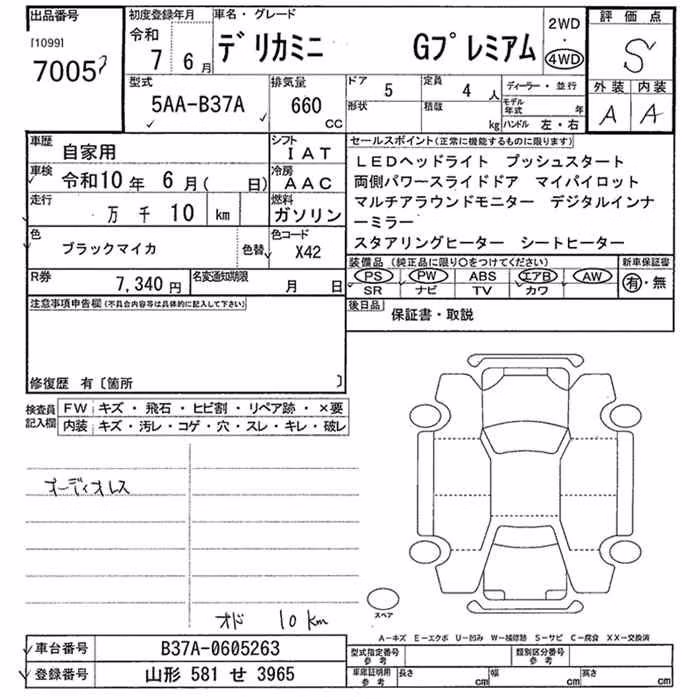 出品番号
[1099]
7005
初度登録年月
令和
7 6月
車名・グレード
デリカミニ Gプレミアム
2WD
・
4WD
評価点
S
外装 内装
A A
型式
5AA-B37A
排気量
660
CC
ドア
5
定員
4 人
形状
積載
kg
ディーラー・並行
モデル年式 年
ハンドル 左・右
車歴
自家用
シフト
IAT
車検 令和10年 6月( 日)
冷房
AAC
走行
万 千 10 km
燃料
ガソリン
色
ブラックマイカ
色替
色コード
X42
R券
7,340 円
名変通知期限
月 日
セールスポイント(正常に機能するものに限ります)
LEDヘッドライト プッシュスタート
両側パワースライドドア マイパイロット
マルチアラウンドモニター デジタルインナ
ーミラー
スタアリングヒーター シートヒーター
装備品 (純正品に限り○をつけてください)
新車保証書
PS PW ABS エアB AW
SR ナビ TV カワ
有・無
後日品
保証書・取説
注意事項申告欄(不具合内容等は具体的に記入して下さい)
修復歴 有〔箇所 〕
検査員
記入欄
FW キズ・飛石・ヒビ割・リペア跡・×要
内装 キズ・汚レ・コゲ・穴・スレ・キレ・破レ
オーディオレス
オド 10km
スペア
A-キズ E-エクボ U-凹み W-補修跡 S-サビ C-腐食 XX-交換済
車台番号 B37A-0605263
登録番号 山形 581 せ 3965
型式指定番号
参考
類別区分番号
参考
車庫証明用
参考
長さ cm 幅 cm 高さ cm